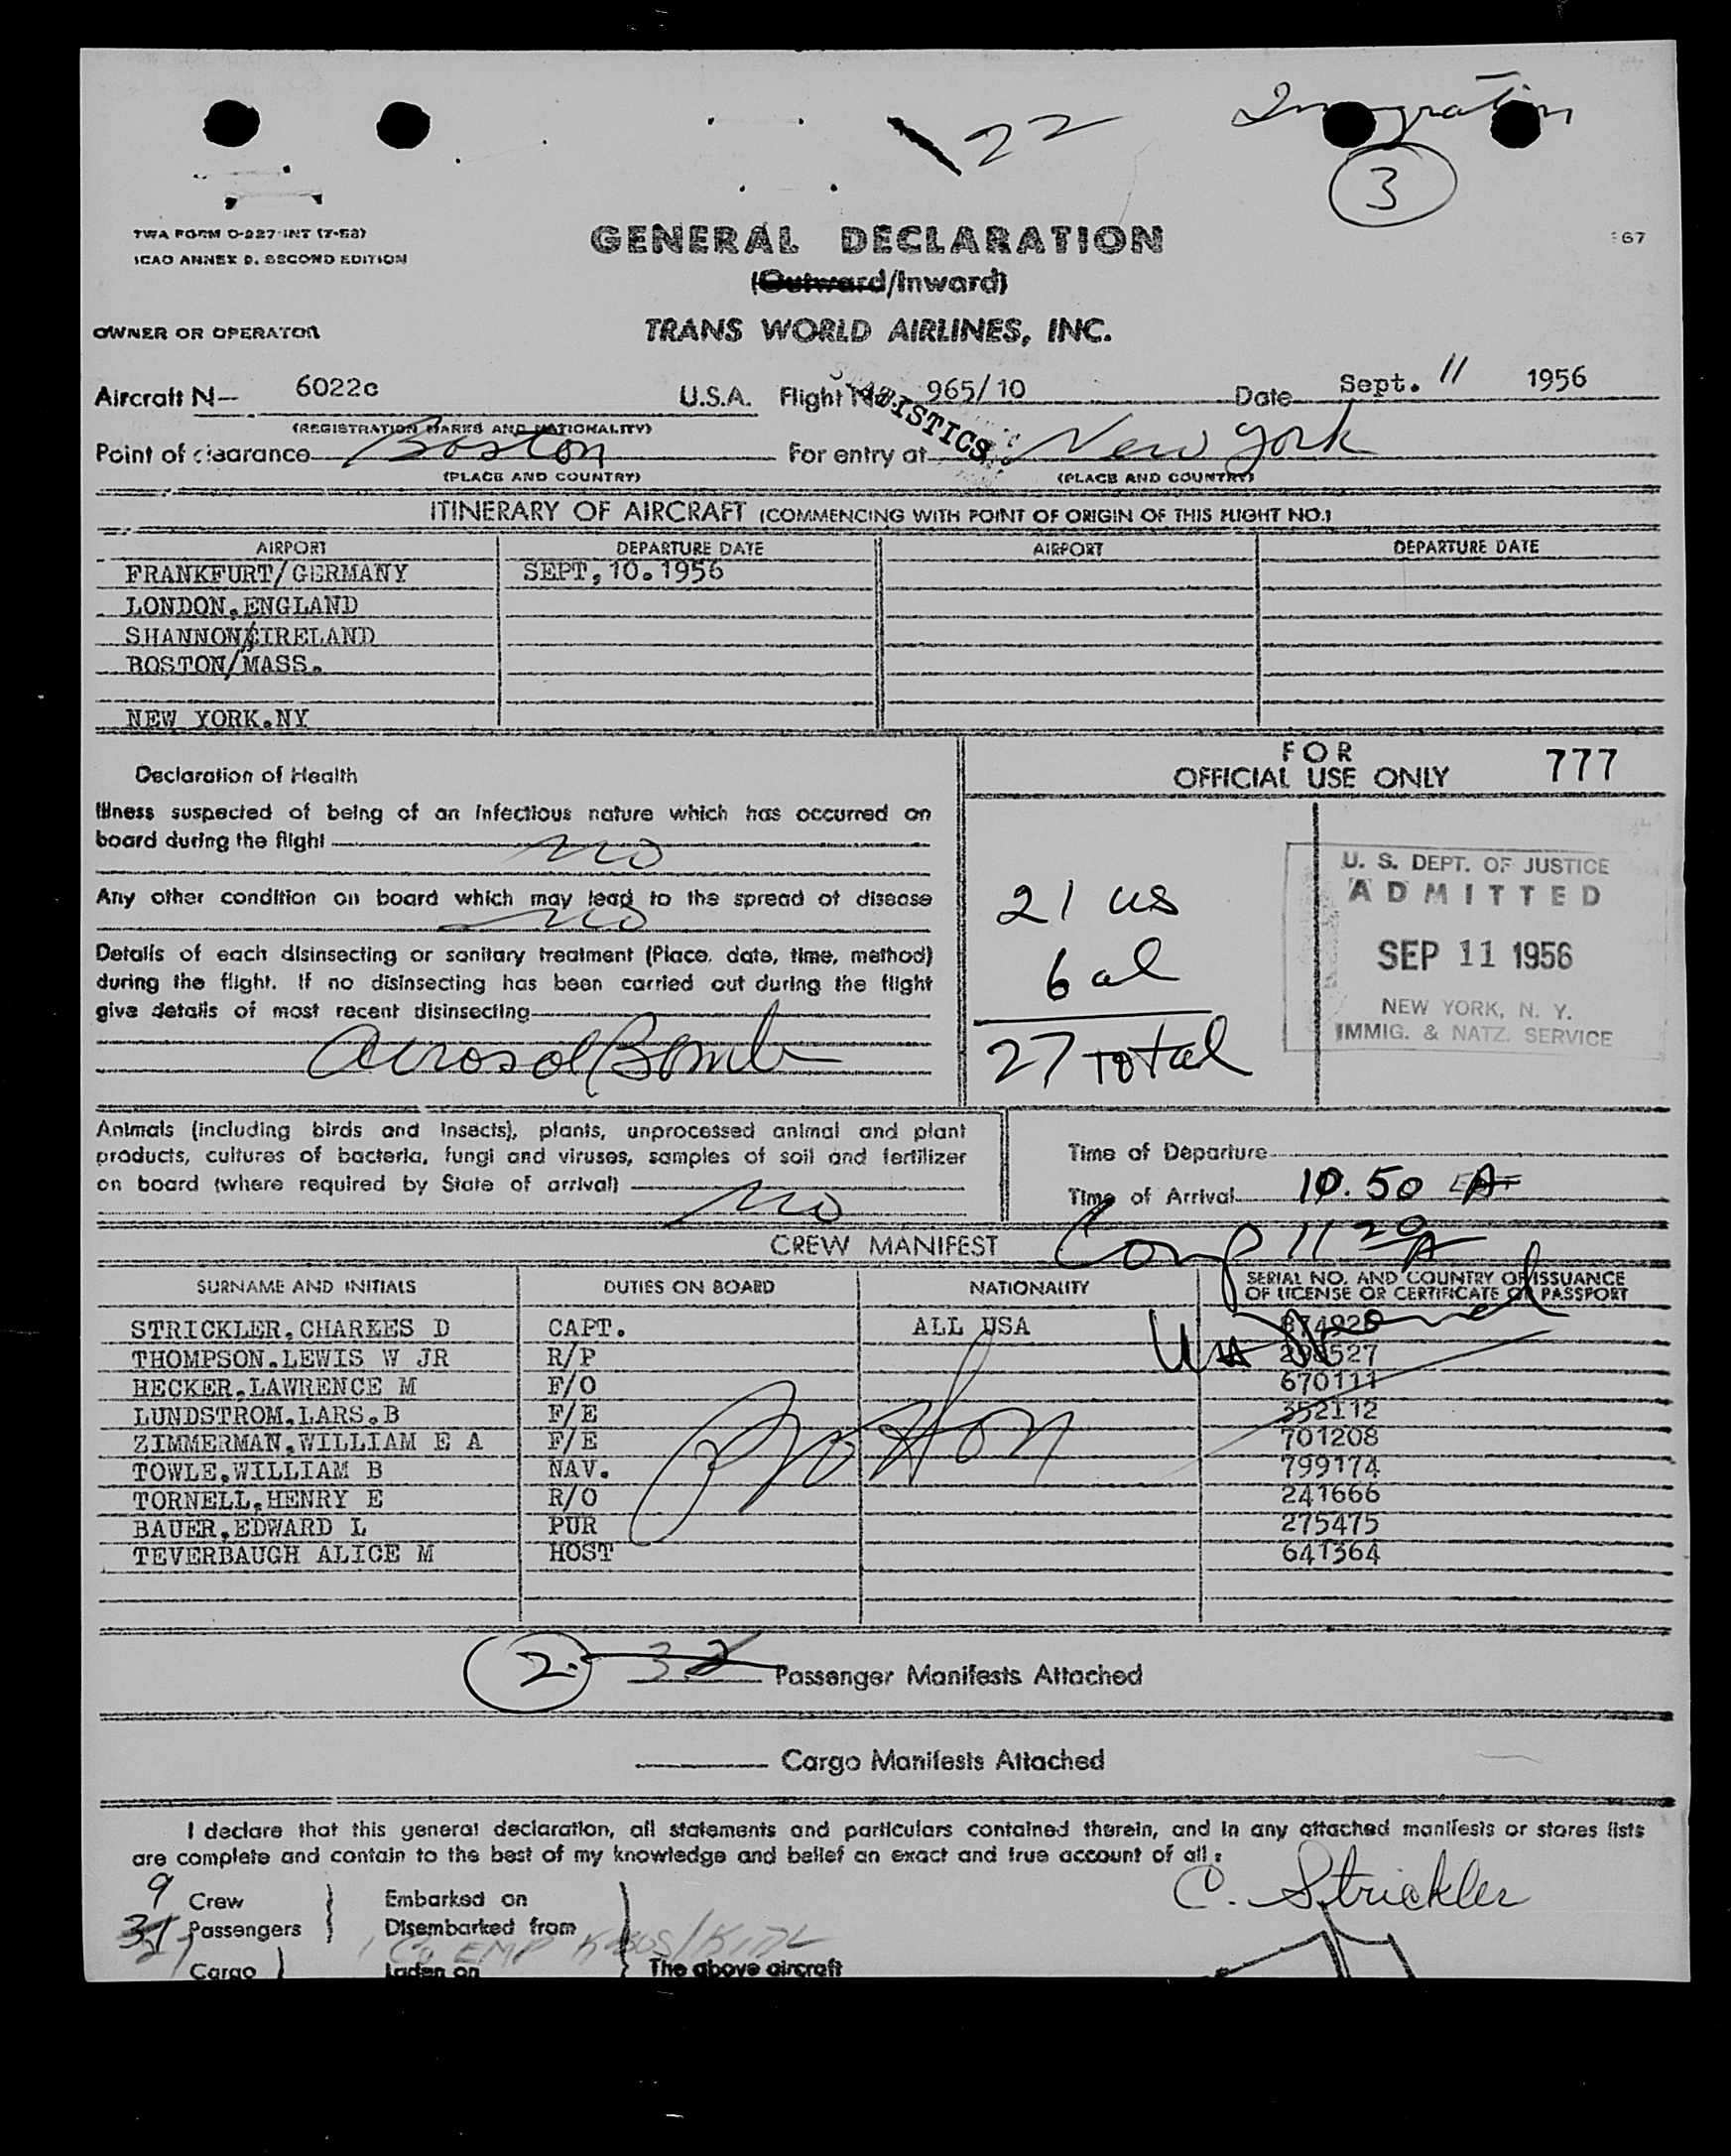 Immigration
22
3
TWA FORM O-227-INT (7-53)
ICAO ANNEX 9, SECOND EDITION
GENERAL DECLARATION
67
(Outward/Inward)
OWNER OR OPERATOR
TRANS WORLD AIRLINES, INC.
Aircraft N— 6022c U.S.A. Flight No. 965/10 Date Sept. 11 1956
(REGISTRATION MARKS AND NATIONALITY)
STATISTICS
Point of clearance Boston For entry at New York
(PLACE AND COUNTRY) (PLACE AND COUNTRY)
ITINERARY OF AIRCRAFT (COMMENCING WITH POINT OF ORIGIN OF THIS FLIGHT NO.)
AIRPORT DEPARTURE DATE AIRPORT DEPARTURE DATE
FRANKFURT/GERMANY SEPT,10.1956
LONDON.ENGLAND
SHANNON/EIRELAND
BOSTON/MASS.
NEW YORK.NY
FOR
OFFICIAL USE ONLY 777
Declaration of Health
Illness suspected of being of an infectious nature which has occurred on
board during the flight no
Any other condition on board which may lead to the spread of disease
no
Details of each disinsecting or sanitary treatment (Place, date, time, method)
during the flight. If no disinsecting has been carried out during the flight
give details of most recent disinsecting
Aerosol Bomb
21 us
6 al
27 Total
U. S. DEPT. OF JUSTICE
ADMITTED
SEP 11 1956
NEW YORK, N. Y.
IMMIG. & NATZ. SERVICE
Animals (including birds and insects), plants, unprocessed animal and plant
products, cultures of bacteria, fungi and viruses, samples of soil and fertilizer
on board (where required by State of arrival)
no
Time of Departure
Time of Arrival 10.50
Comp 11 20 A
CREW MANIFEST
SURNAME AND INITIALS DUTIES ON BOARD NATIONALITY SERIAL NO. AND COUNTRY OF ISSUANCE
OF LICENSE OR CERTIFICATE OR PASSPORT
STRICKLER,CHARKES D CAPT. ALL USA
THOMPSON.LEWIS W JR R/P
HECKER.LAWRENCE M F/O 670111
LUNDSTROM.LARS.B F/E 352112
ZIMMERMAN.WILLIAM E A F/E 701208
TOWLE.WILLIAM B NAV. 799174
TORNELL.HENRY E R/O 241666
BAUER.EDWARD L PUR 275475
TEVERBAUGH ALICE M HOST 641364
2. 32 Passenger Manifests Attached
Cargo Manifests Attached
I declare that this general declaration, all statements and particulars contained therein, and in any attached manifests or stores lists
are complete and contain to the best of my knowledge and belief an exact and true account of all:
C. Strickler
9 Crew Embarked on
Passengers Disembarked from
Cargo Laden on The above aircraft